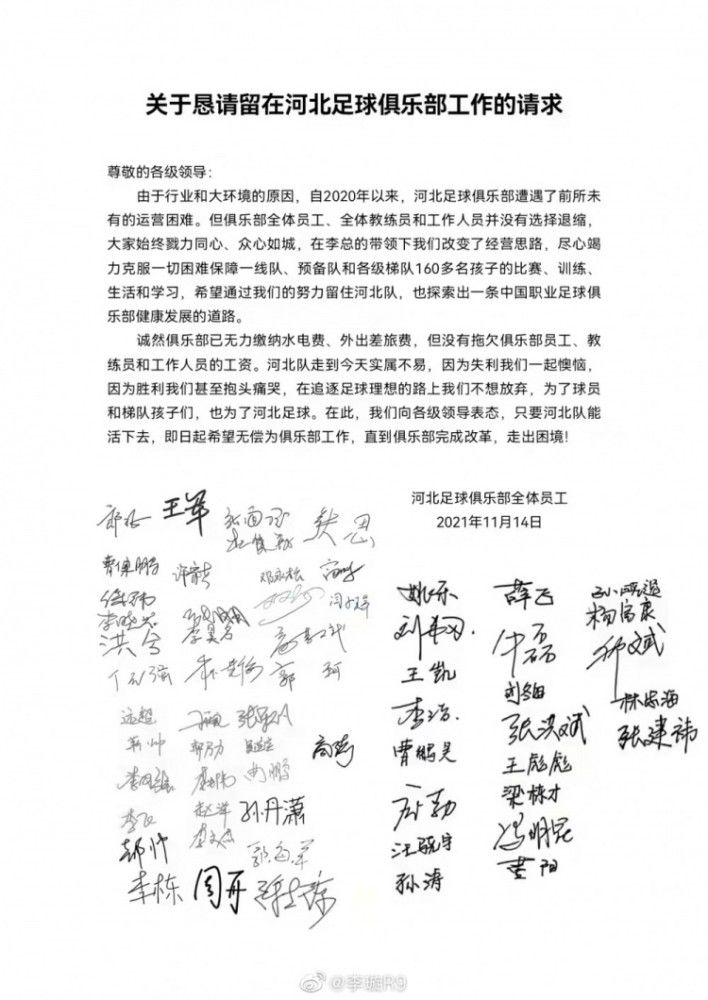 关于恳请留在河北足球俱乐部工作的请求
尊敬的各级领导：
由于行业和大环境的原因，自2020年以来，河北足球俱乐部遭遇了前所未
有的运营困难。但俱乐部全体员工、全体教练员和工作人员并没有选择退缩，
大家始终戮力同心、众心如城，在李总的带领下我们改变了经营思路，尽心竭
力克服一切困难保障一线队、预备队和各级梯队160多名孩子的比赛、训练、
生活和学习，希望通过我们的努力留住河北队，也探索出一条中国职业足球俱
乐部健康发展的道路。
诚然俱乐部已无力缴纳水电费、外出差旅费，但没有拖欠俱乐部员工、教
练员和工作人员的工资。河北队走到今天实属不易，因为失利我们一起懊恼，
因为胜利我们甚至抱头痛哭，在追逐足球理想的路上我们不想放弃，为了球员
和梯队孩子们，也为了河北足球。在此，我们向各级领导表态，只要河北队能
活下去，即日起希望无偿为俱乐部工作，直到俱乐部完成改革，走出困境！
河北足球俱乐部全体员工
2021年11月14日
王军
曹保鹏
洪兮
郭珂
孙丹潇
李栋 周丹
姚乐
王凯
李浩
曹鹏昊
孙涛
薛飞
牛磊
张洪斌
王彪彪
梁栋才
冯明昆
杨富康
林忠海
张建祎
@李璇R9